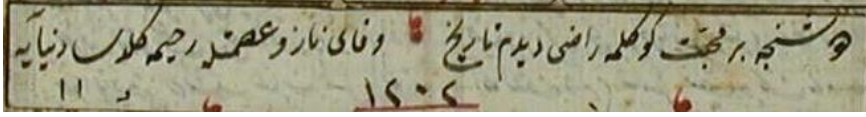 دوشنجه بر محبت کوکلمه راضی دیدم تاریخ وفای ناز و عصمتله رحیمه کلدی دنیایه
١٢٠٢ د ١١